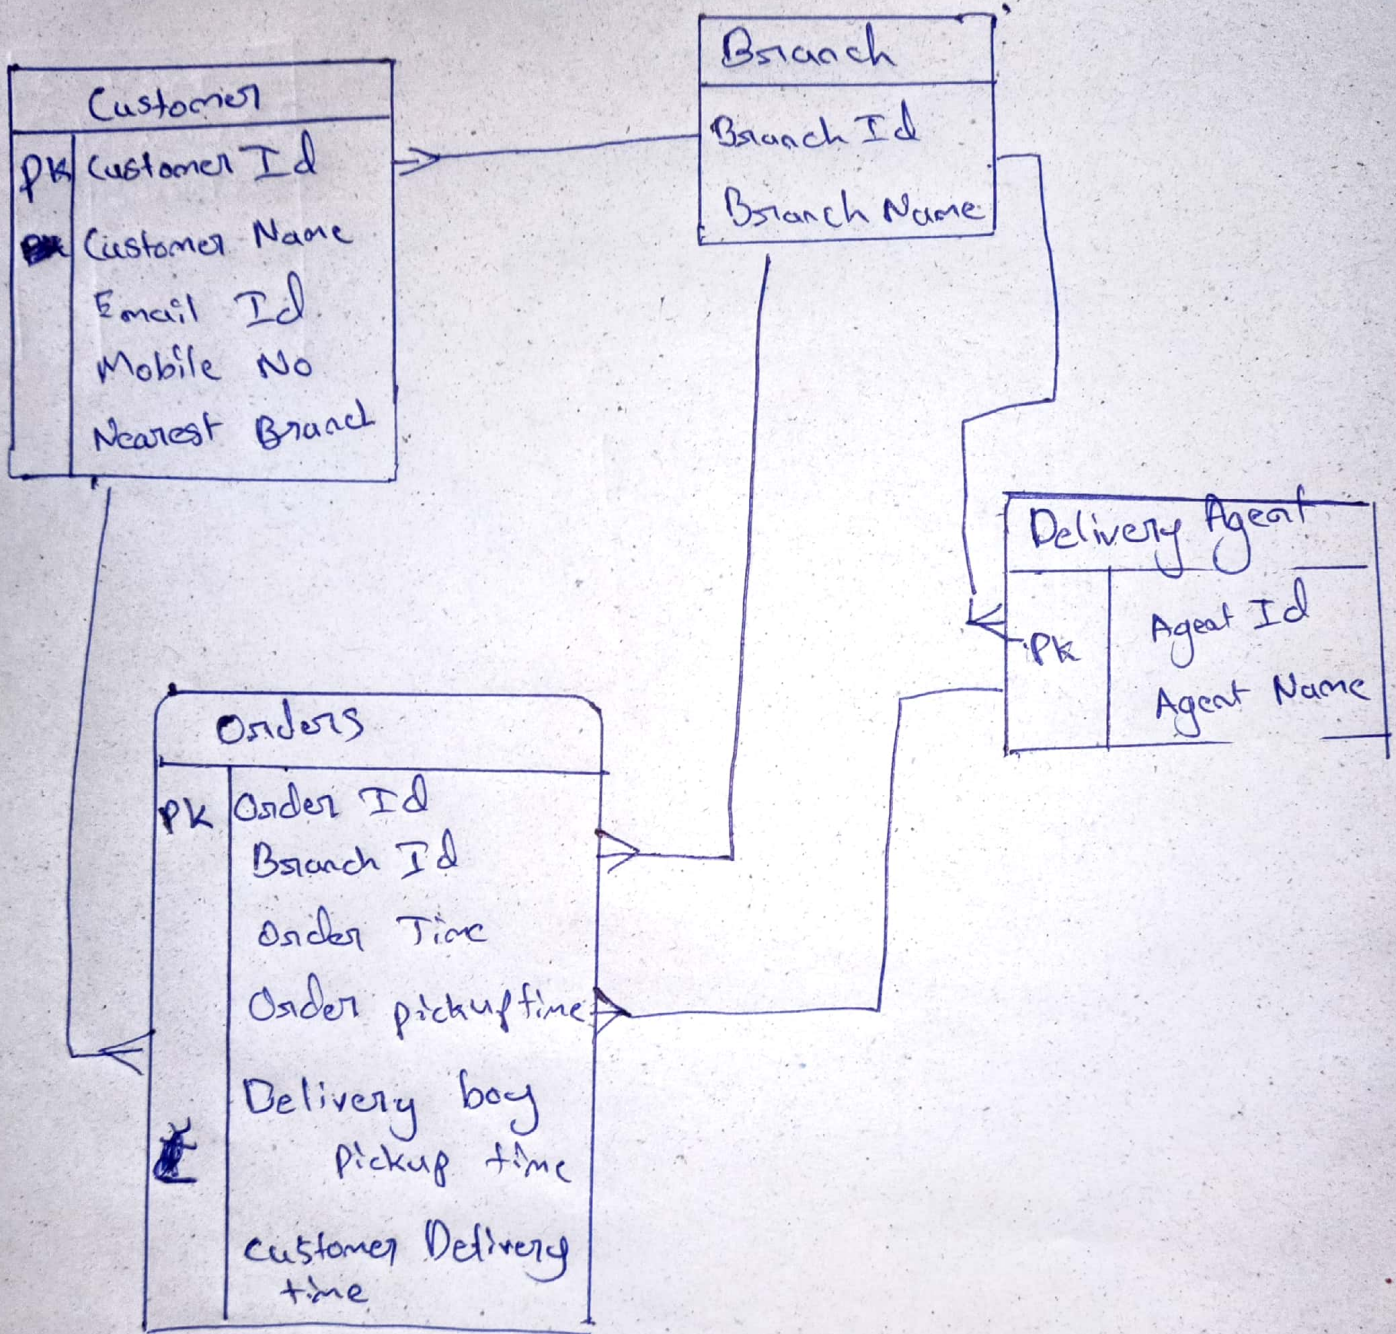 Customer
PK Customer Id
Customer Name
Email Id
Mobile No
Nearest Branch
Branch
Branch Id
Branch Name
Delivery Agent
PK Agent Id
Agent Name
Orders
PK Order Id
Branch Id
Order Time
Order pickup time
Delivery boy
pickup time
Customer Delivery
time